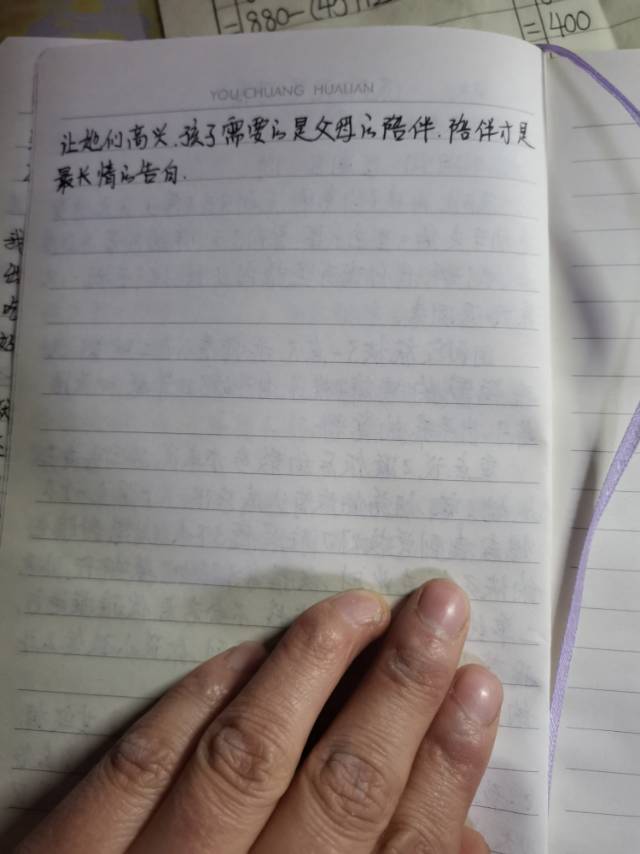 880-(45+
=400
YOU CHUANG HUALIAN
让她们高兴.孩子需要的是父母的陪伴.陪伴才是
最长情的告白.
我